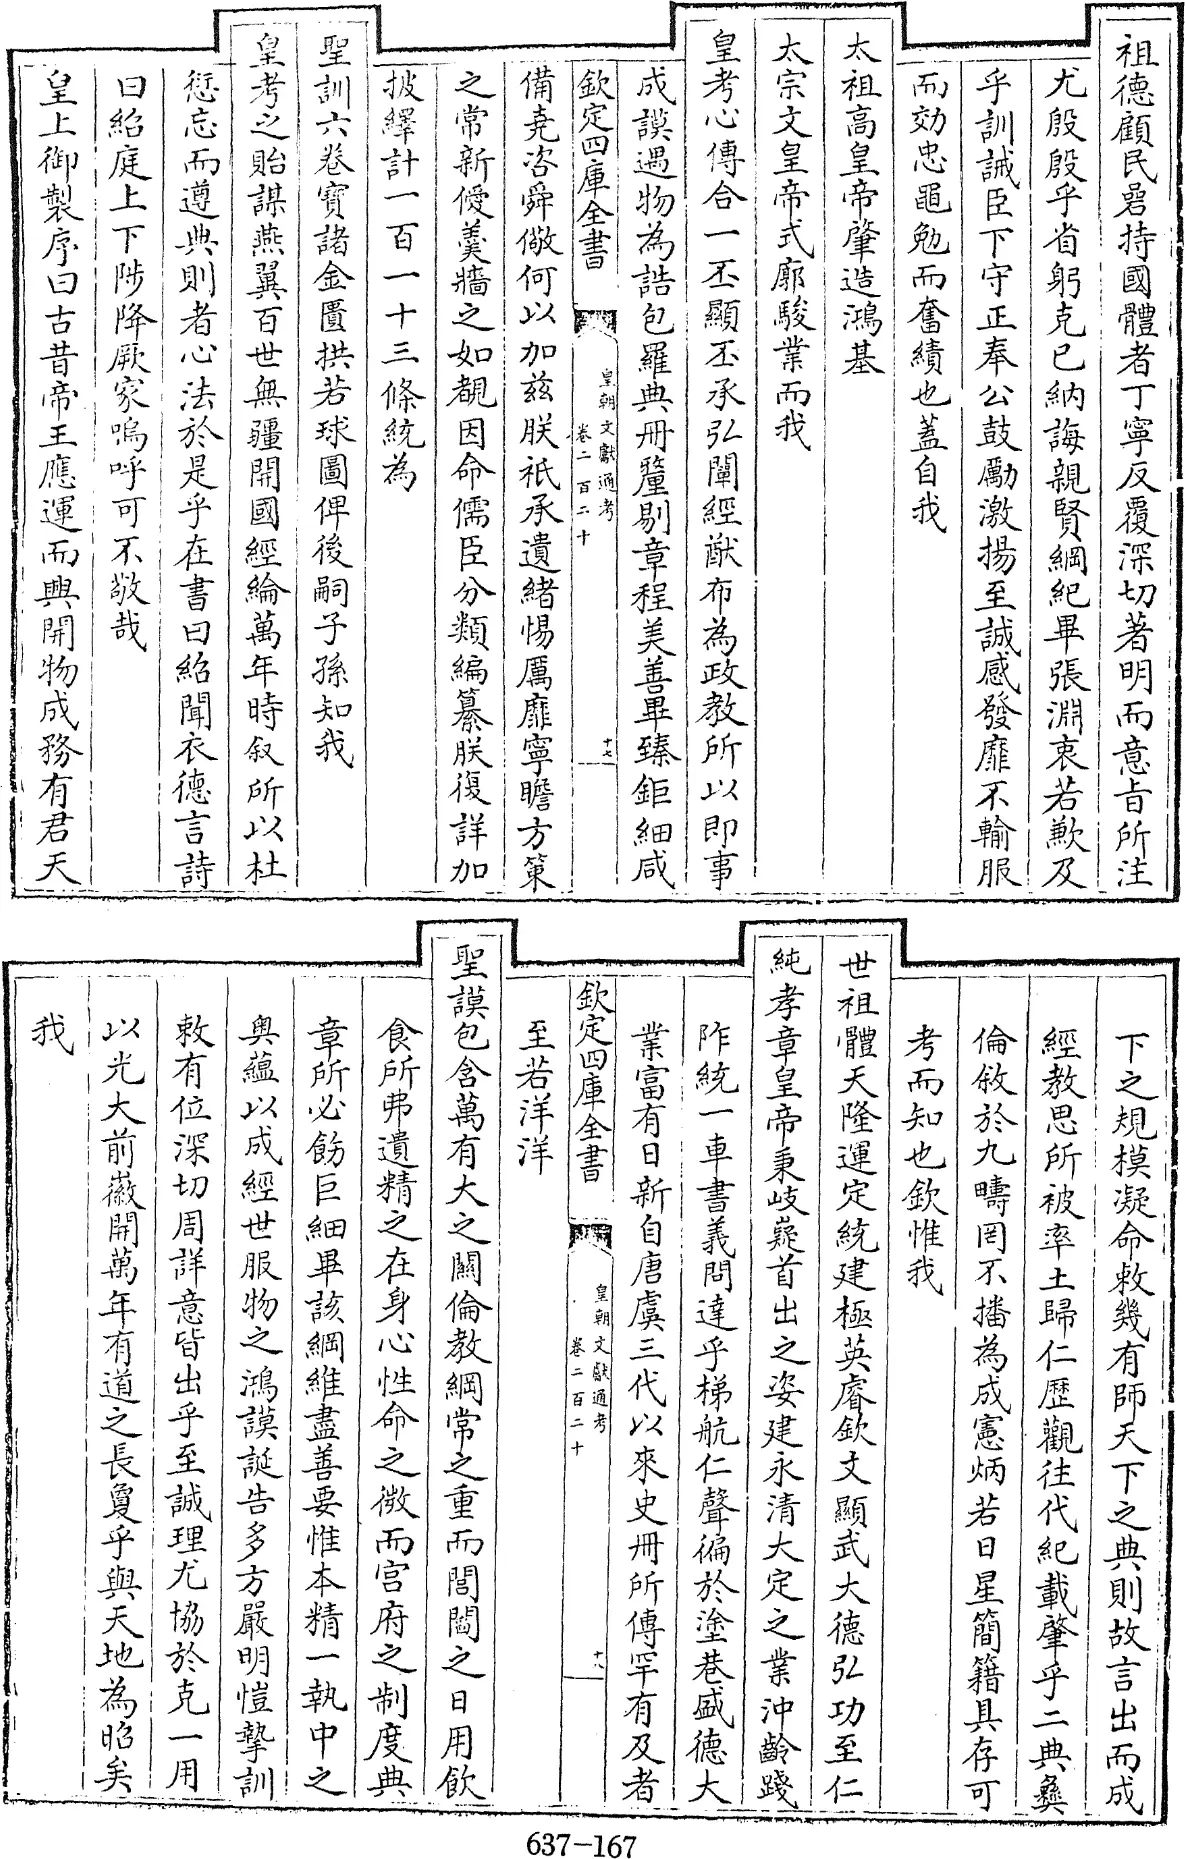 祖德顧民碞持國體者丁寧反覆深切著明而意旨所注
尤殷殷乎省躬克己納誨親賢綱紀畢張淵衷若歉及
乎訓誡臣下守正奉公鼓勵激揚至誠感發靡不輸服
而効忠黽勉而奮績也蓋自我
太祖高皇帝肇造鴻基
太宗文皇帝式廓駿業而我
皇考心傳合一丕顯丕承弘闡經猷布為政教所以即事
成謨遇物為誥包羅典冊釐剔章程美善畢臻鉅細咸
欽定四庫全書
皇朝文獻通考
卷二百二十
十七
備堯咨舜儆何以加茲朕祇承遺緒惕厲靡寧瞻方策
之常新僾羹牆之如覩因命儒臣分類編纂朕復詳加
披繹計一百一十三條統為
聖訓六卷寶諸金匱拱若球圖俾後嗣子孫知我
皇考之貽謀燕翼百世無疆開國經綸萬年時叙所以杜
愆忘而遵典則者心法於是乎在書曰紹聞衣德言詩
曰紹庭上下陟降厥家嗚呼可不敬哉
皇上御製序曰古昔帝王應運而興開物成務有君天
下之規模凝命敕幾有師天下之典則故言出而成
經教思所被率土歸仁歷觀往代紀載肇乎二典彝
倫敘於九疇罔不播為成憲炳若日星簡籍具存可
考而知也欽惟我
世祖體天隆運定統建極英睿欽文顯武大德弘功至仁
純孝章皇帝秉岐嶷首出之姿建永清大定之業沖齡踐
阼統一車書義問達乎梯航仁聲徧於塗巷盛德大
業富有日新自唐虞三代以來史冊所傳罕有及者
欽定四庫全書
皇朝文獻通考
卷二百二十
十八
至若洋洋
聖謨包含萬有大之關倫教綱常之重而閭閻之日用飲
食所弗遺精之在身心性命之微而宮府之制度典
章所必飭巨細畢該綱維盡善要惟本精一執中之
奧蘊以成經世服物之鴻謨誕告多方嚴明愷摯訓
敕有位深切周詳意皆出乎至誠理尤協於克一用
以光大前徽開萬年有道之長敻乎與天地為昭矣
我
637-167